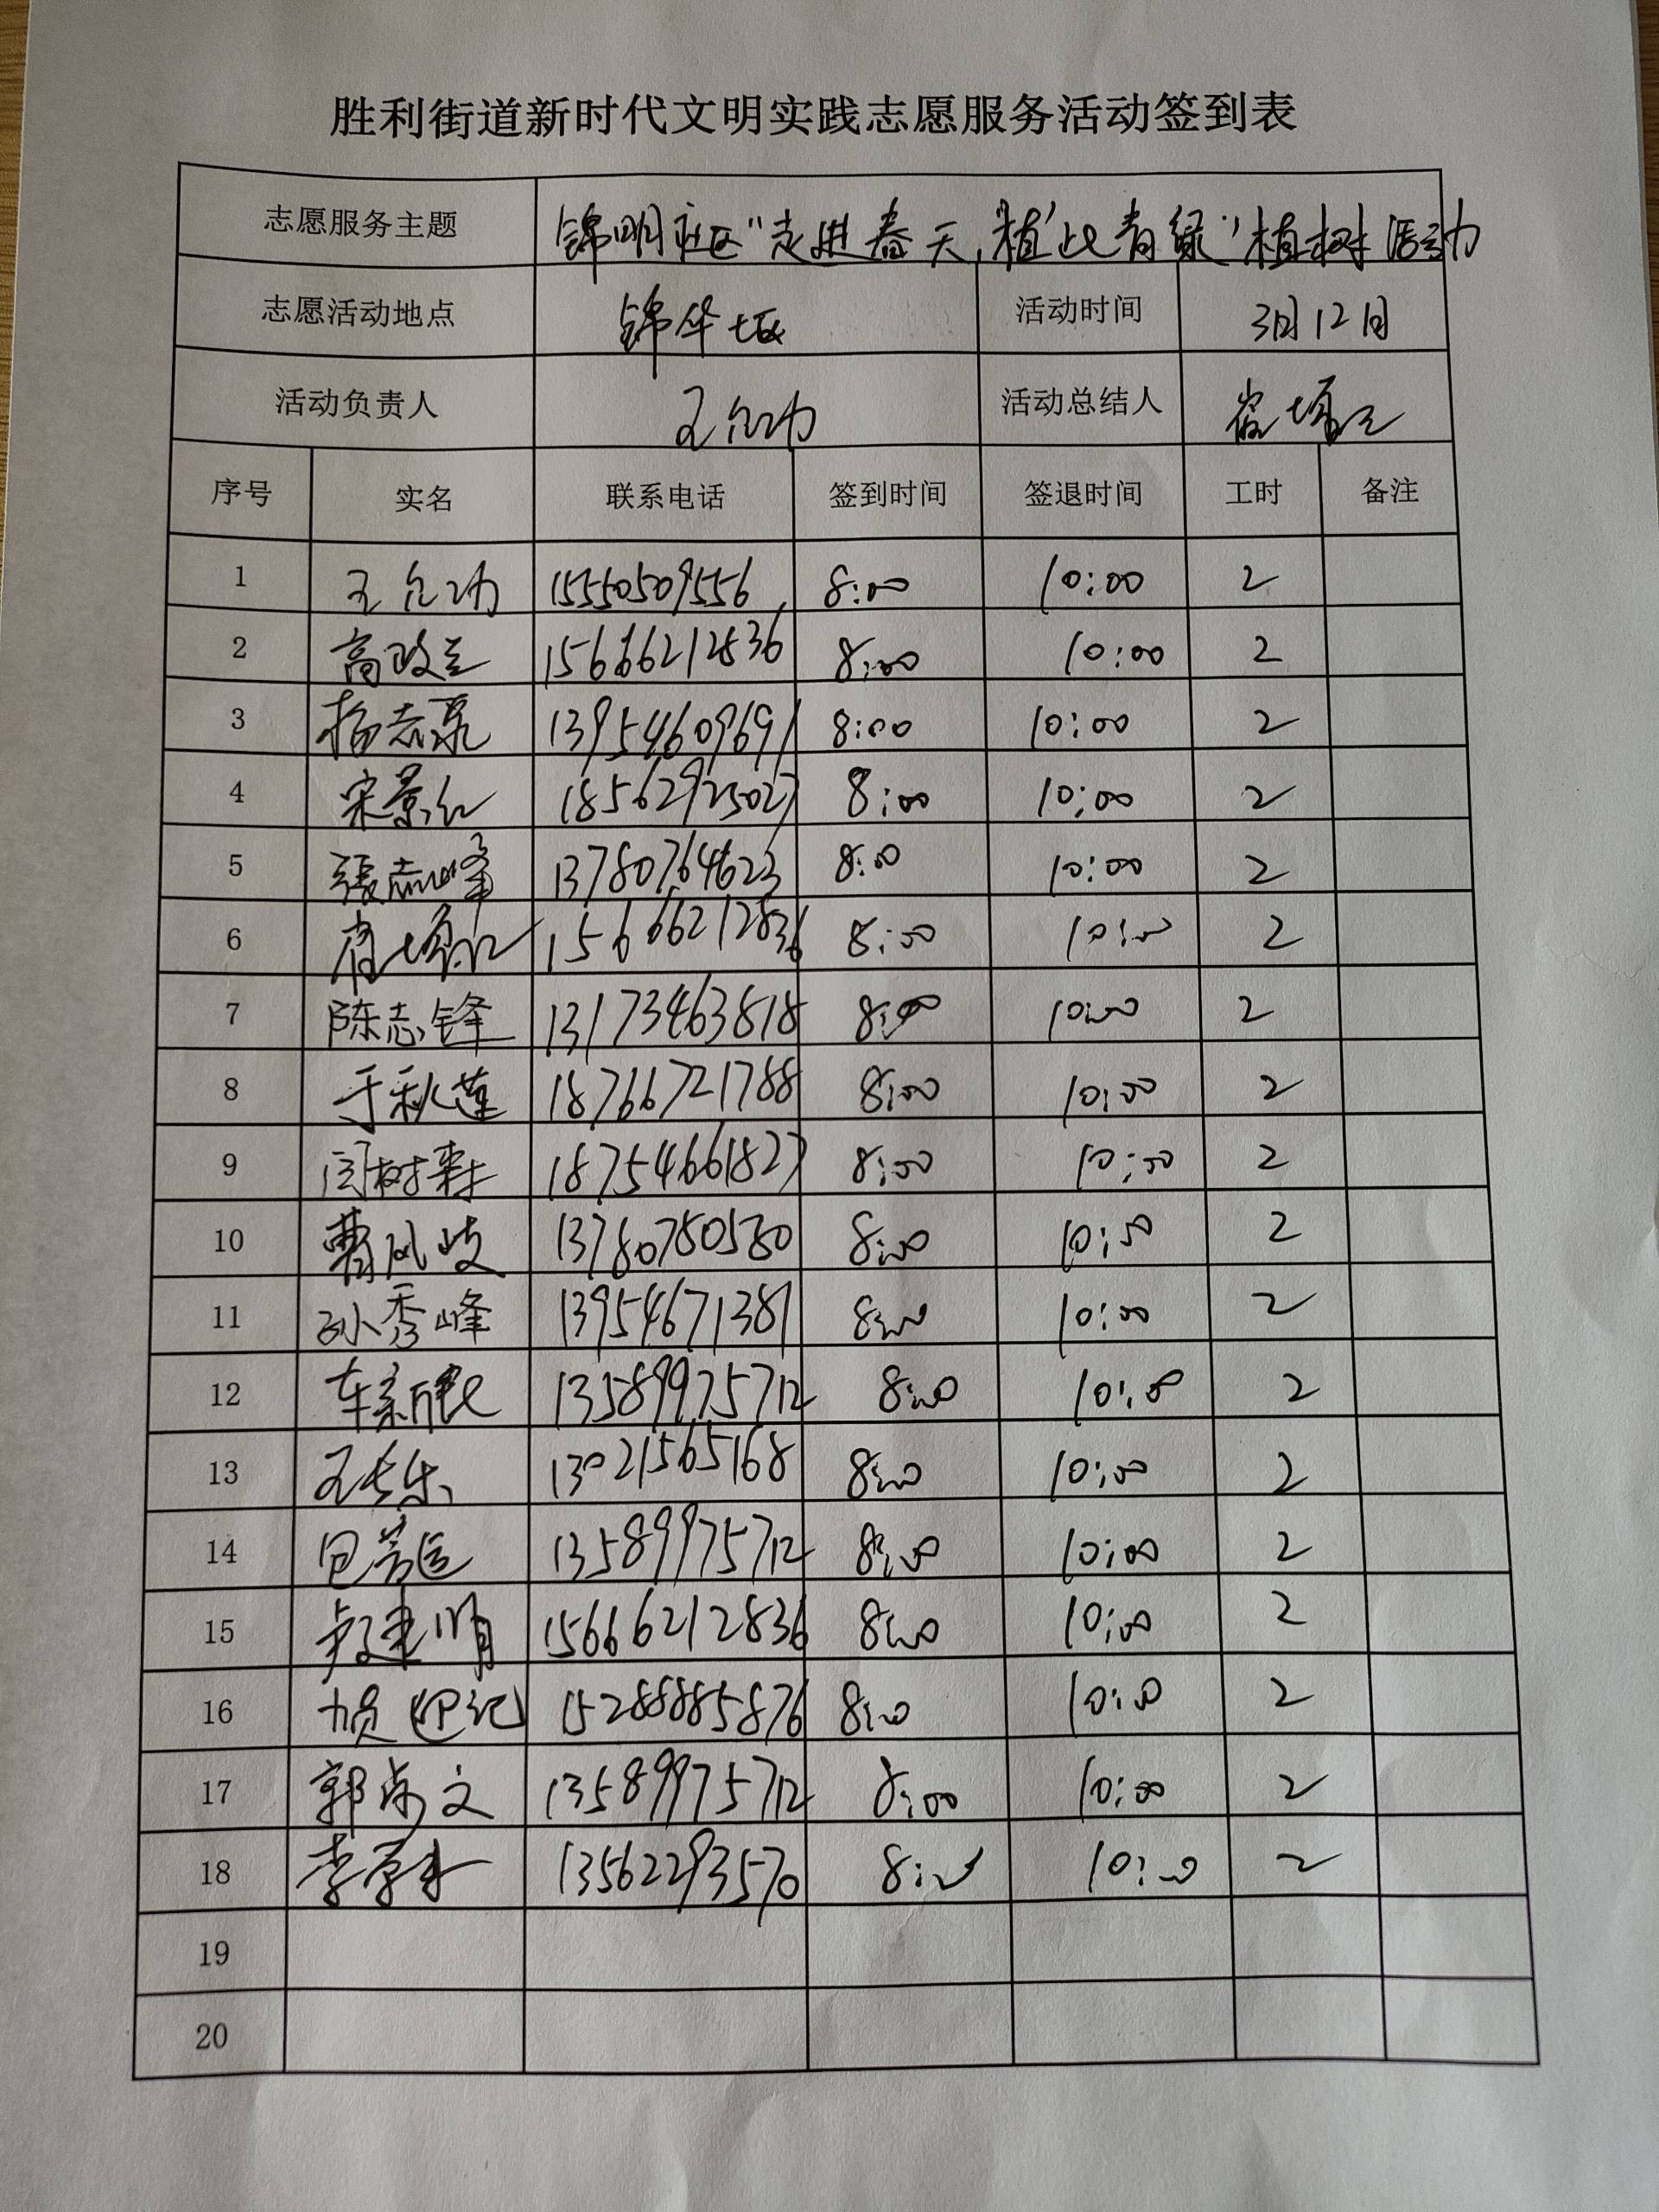 胜利街道新时代文明实践志愿服务活动签到表
志愿服务主题 锦明社区"走进春天,"植"此青绿"植树活动
志愿活动地点 锦华 活动时间 3月12日
活动负责人 活动总结人
序号 实名 联系电话 签到时间 签退时间 工时 备注
1 15550509556 8:00 10:00 2
2 高政兰 15666212836 8:00 10:00 2
3 杨志泉 13954609691 8:00 10:00 2
4 宋景红 18562925027 8:00 10:00 2
5 張志峰 13780764623 8:00 10:00 2
6 15666212836 8:00 10:00 2
7 陈志锋 13173463818 8:00 10:00 2
8 于秋莲 18766721788 8:00 10:00 2
9 闫树森 18754661827 8:00 10:00 2
10 曹风岐 13780750580 8:00 10:00 2
11 孙秀峰 13954671381 8:00 10:00 2
12 车新民 13589975712 8:00 10:00 2
13 王长乐 13021565168 8:00 10:00 2
14 13589975712 8:00 10:00 2
15 15666212836 8:00 10:00 2
16 15288885876 8:00 10:00 2
17 郭尚文 13589975712 8:00 10:00 2
18 李 13562293570 8:00 10:00 2
19
20